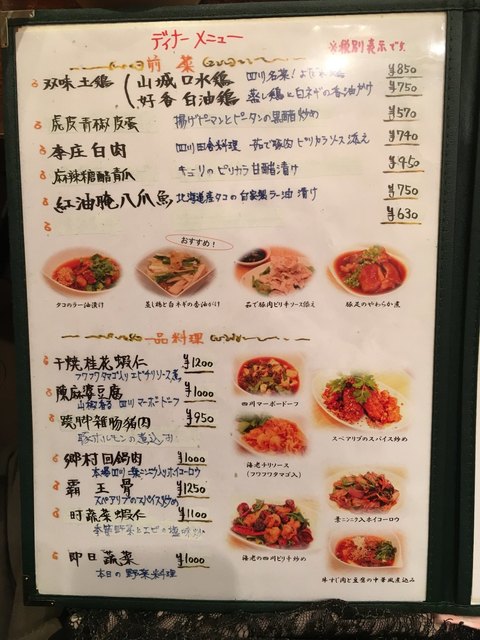 ディナーメニュー
※税別表示です。
前菜
双味土鶏
山城口水鶏
四川名菜!よだれ鶏
¥850
好香白油鶏
蒸し鶏と白ネギの香油がけ
¥750
虎皮青椒皮蛋
揚げピーマンとピータンの黒醋炒め
¥570
李庄白肉
四川田舎料理 茹で豚肉ピリカラソース添え
¥740
麻辣糖醋青瓜
キュウリのピリカラ甘醋漬け
¥450
紅油腌八爪魚
北海道産タコの自家製ラー油漬け
¥750
¥630
おすすめ!
タコのラー油漬け
蒸し鶏と白ネギの香油がけ
茹で豚肉ピリ辛ソース添え
豚足のやわらか煮
一品料理
干焼桂花蝦仁
¥1200
フワフワタマゴ入りエビチリソース煮
陳麻婆豆腐
¥1000
山椒香る四川マーボードーフ
蹺脚雑物猪肉
¥950
豚ホルモンの煮込み
郷村回鍋肉
¥1000
本場四川 葉ニンニク入りホイコーロウ
霸王骨
¥1250
スペアリブのスパイス炒め
时蔬菜蝦仁
¥1100
季節野菜とエビの塩炒め
即日蔬菜
¥1000
本日の野菜料理
四川マーボードーフ
スペアリブのスパイス炒め
海老チリソース
(フワフワタマゴ入)
葉ニンニク入ホイコーロウ
海老の四川ピリ辛炒め
牛すじ肉と豆腐の中華風煮込み